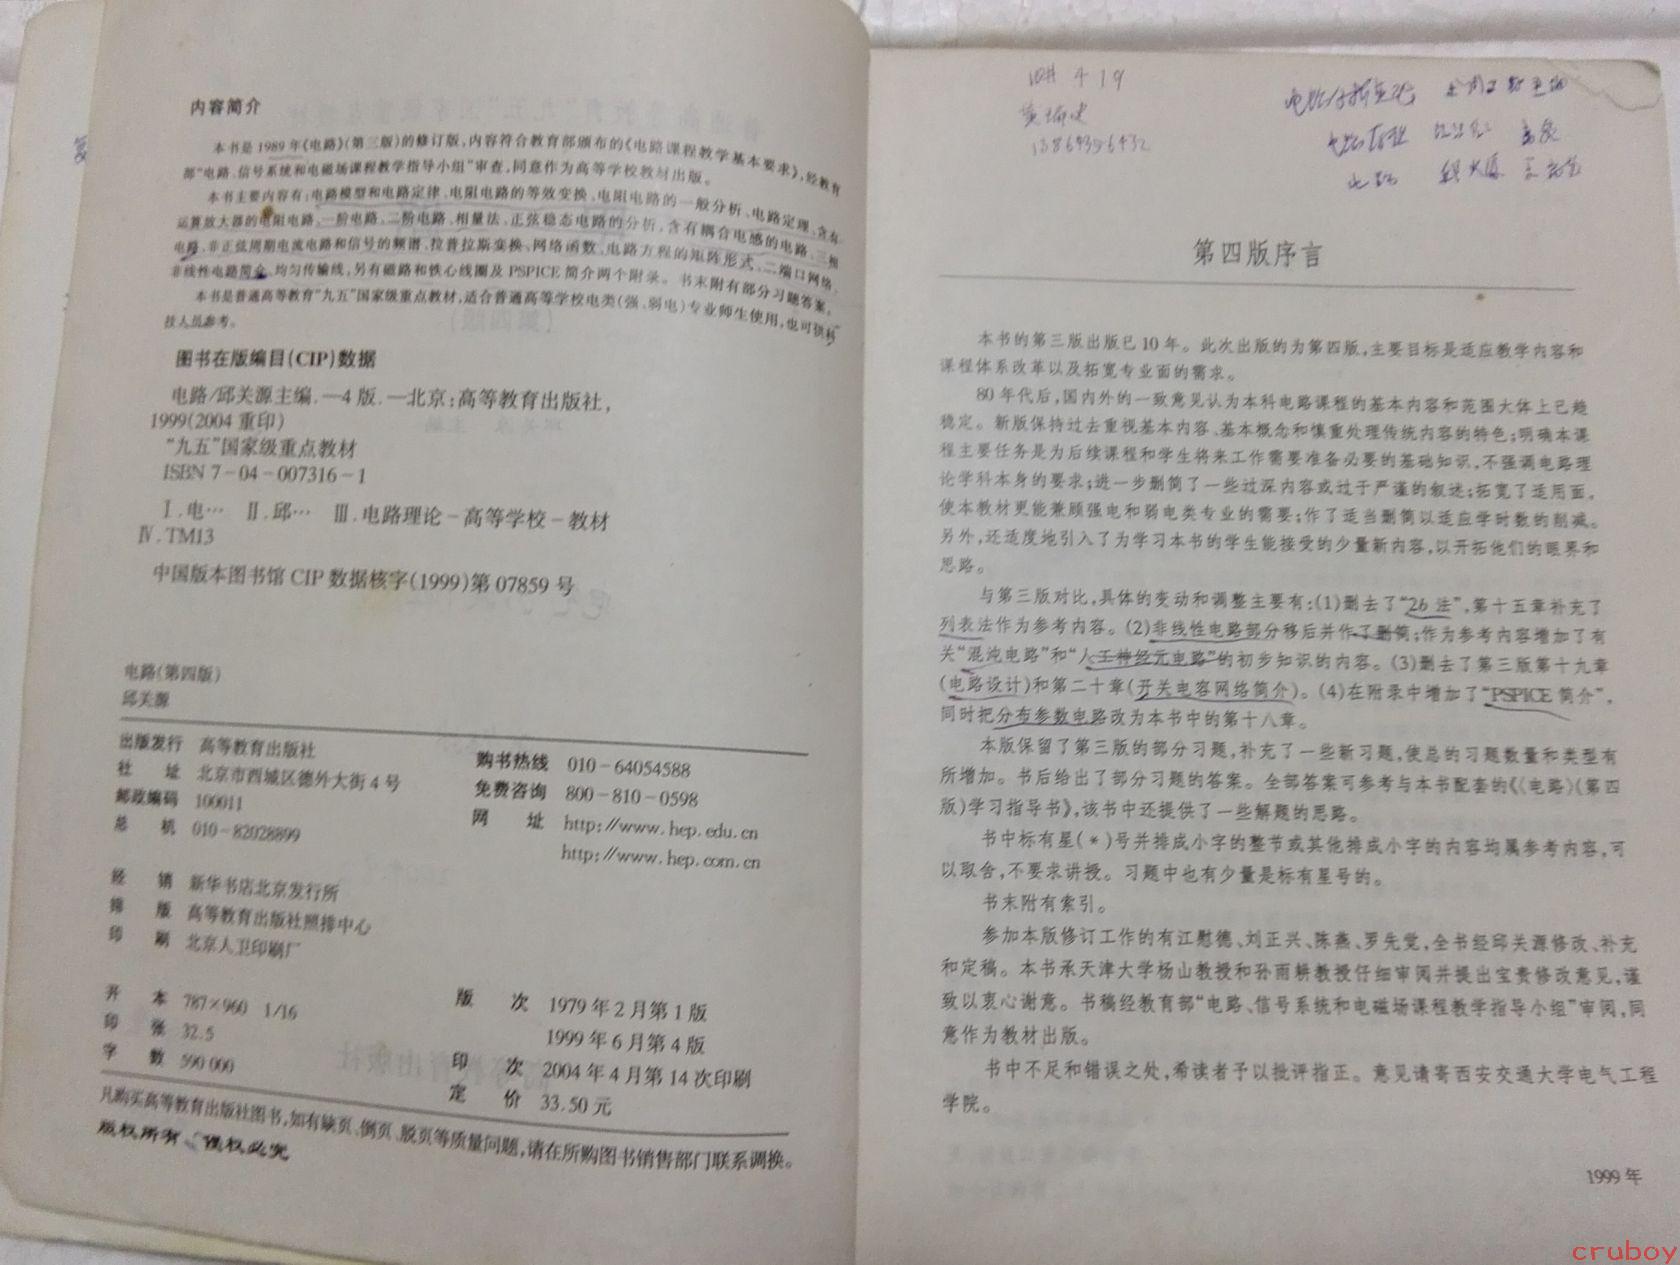 内容简介
本书是1989年《电路》(第三版)的修订版,内容符合教育部颁布的《电路课程教学基本要求》,经教育
部“电路、信号系统和电磁场课程教学指导小组”审查,同意作为高等学校教材出版。
本书主要内容有:电路模型和电路定律、电阻电路的等效变换、电阻电路的一般分析、电路定理、含有
运算放大器的电阻电路、一阶电路、二阶电路、相量法、正弦稳态电路的分析、含有耦合电感的电路、三相
电路、非正弦周期电流电路和信号的频谱、拉普拉斯变换、网络函数、电路方程的矩阵形式、二端口网络、
非线性电路简介、均匀传输线,另有磁路和铁心线圈及PSPICE简介两个附录。书末附有部分习题答案。
本书是普通高等教育“九五”国家级重点教材,适合普通高等学校电类(强、弱电)专业师生使用,也可供科
技人员参考。
图书在版编目(CIP)数据
电路/邱关源主编.—4版.—北京:高等教育出版社,
1999(2004重印)
“九五”国家级重点教材
ISBN 7-04-007316-1
Ⅰ.电… Ⅱ.邱… Ⅲ.电路理论-高等学校-教材
Ⅳ.TM13
中国版本图书馆CIP数据核字(1999)第07859号
电路(第四版)
邱关源
出版发行 高等教育出版社
社 址 北京市西城区德外大街4号
邮政编码 100011
总 机 010-82028899
购书热线 010-64054588
免费咨询 800-810-0598
网 址 http://www.hep.edu.cn
http://www.hep.com.cn
经 销 新华书店北京发行所
排 版 高等教育出版社照排中心
印 刷 北京人卫印刷厂
开 本 787×960 1/16
印 张 32.5
字 数 590 000
版 次 1979年2月第1版
1999年6月第4版
印 次 2004年4月第14次印刷
定 价 33.50元
凡购买高等教育出版社图书,如有缺页、倒页、脱页等质量问题,请在所购图书销售部门联系调换。
版权所有 侵权必究
4 19
第四版序言
本书的第三版出版已10年。此次出版的为第四版,主要目标是适应教学内容和
课程体系改革以及拓宽专业面的需求。
80年代后,国内外的一致意见认为本科电路课程的基本内容和范围大体上已趋
稳定。新版保持过去重视基本内容、基本概念和慎重处理传统内容的特色;明确本课
程主要任务是为后续课程和学生将来工作需要准备必要的基础知识,不强调电路理
论学科本身的要求;进一步删简了一些过深内容或过于严谨的叙述;拓宽了适用面,
使本教材更能兼顾强电和弱电类专业的需要;作了适当删简以适应学时数的削减。
另外,还适度地引入了为学习本书的学生能接受的少量新内容,以开拓他们的眼界和
思路。
与第三版对比,具体的变动和调整主要有:(1)删去了“2b法”,第十五章补充了
列表法作为参考内容。(2)非线性电路部分移后并作了删简;作为参考内容增加了有
关“混沌电路”和“人工神经元电路”的初步知识的内容。(3)删去了第三版第十九章
(电路设计)和第二十章(开关电容网络简介)。(4)在附录中增加了“PSPICE简介”,
同时把分布参数电路改为本书中的第十八章。
本版保留了第三版的部分习题,补充了一些新习题,使总的习题数量和类型有
所增加。书后给出了部分习题的答案。全部答案可参考与本书配套的《〈电路〉(第四
版)学习指导书》,该书中还提供了一些解题的思路。
书中标有星(*)号并排成小字的整节或其他排成小字的内容均属参考内容,可
以取舍,不要求讲授。习题中也有少量是标有星号的。
书末附有索引。
参加本版修订工作的有江慰德、刘正兴、陈燕、罗先觉,全书经邱关源修改、补充
和定稿。本书承天津大学杨山教授和孙雨耕教授仔细审阅并提出宝贵修改意见,谨
致以衷心谢意。书稿经教育部“电路、信号系统和电磁场课程教学指导小组”审阅,同
意作为教材出版。
书中不足和错误之处,希读者予以批评指正。意见请寄西安交通大学电气工程
学院。
1999年
cruboy